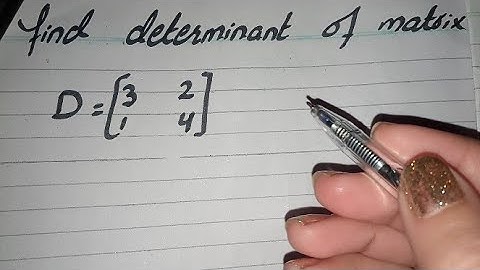 find determinant of matrix
D = [3 2
1 4]